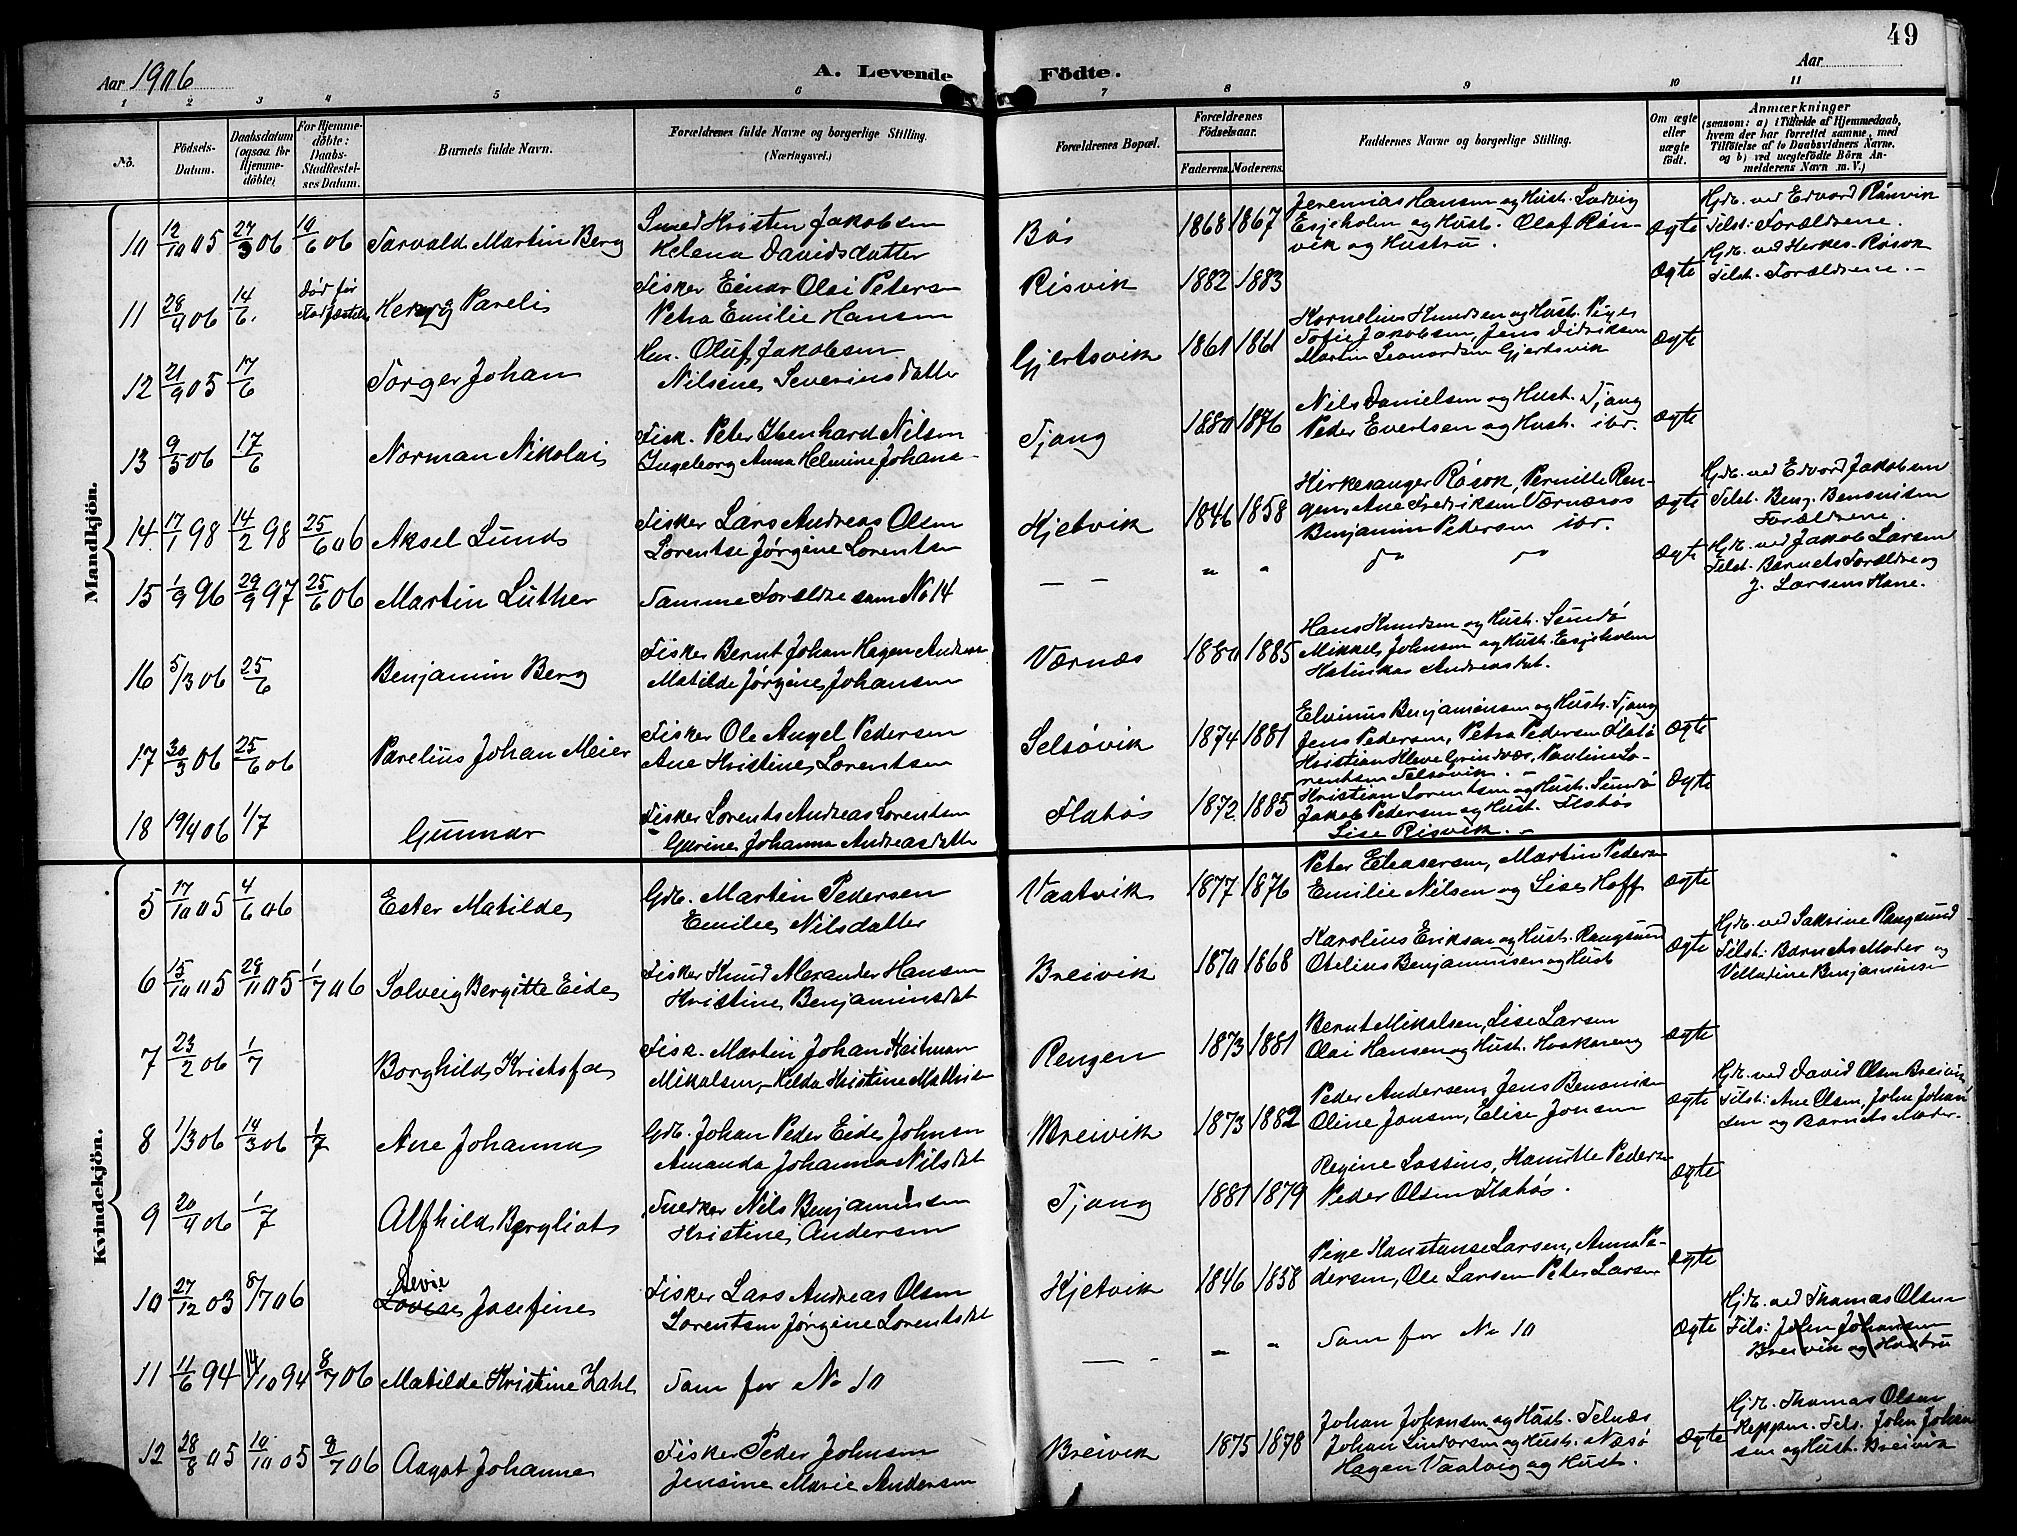 49
Aar 1906
A. Levende Födte.
Aar
1 2 3 4 5 6 7 8 9 10 11
No.
Födsels-Datum.
Daabsdatum (ogsaa for Hjemmedöbte)
For Hjemmedöbte: Daabs-Stadfestelses Datum.
Barnets fulde Navn.
Forældrenes fulde Navne og borgerlige Stilling. (Næringsvei.)
Forældrenes Bopæl.
Forældrenes Födselsaar.
Faderens. Moderens.
Faddernes Navne og borgerlige Stilling.
Om ægte eller uægte født.
Anmærkninger
(saasom: a) i Tilfælde af Hjemmedaab,
hvem der har forrettet samme, med
Tilföielse af to Daabsvidners Navne,
og b) ved uægtefödte Börn An-
melderens Navn m. V.)
Mandkjön.
10 12/10 05 27/3 06 10/6 06 Torvald Martin Berg
Smed Kristen Jakobsen
Helena Davidsdatter
Bøs 1868 1867
Jeremias Hansen og Hust. Ludvig
Esjeholm og Hust. Olaf Røn-
vik og Hustru.
Ægte
Hjdb. ved Edvard Rønvik
Tilst. Forældrene.
11 28/9 06 14/6. Død før Stadfæstelse
Parelis
Fisker Einar Olai Petersen
Petra Emilie Hansen
Risvik 1882 1883
Ægte
Hjdb. ved Røsok
Tilst. Forældrene. -
12 21/9 05 17/6 Torger Johan
Oluf Jakobsen
Nilsine Severinsdatter
Gjertsvik 1861 1861
Kornelius Knudsen og Hust. Pige
Sofie Jakobsen Jens Didriksen
Martin Leonardsen Gjertsvik
Ægte
13 9/3 06 17/6 Norman Nikolai
Fisk. Peter Ibenhard Nilsen
Ingeborg Anna Helmine Johans-
Tjong 1880 1876
Nils Danielsen og Hust. Tjong
Peder Evertsen og Hust. ibr.
Ægte
14 17/1 98 14/2 98 25/6 06 Aksel Lund
Fisker Lars Andreas Olsen
Lorentse Jørgine Lorentsen
Kjetvik 1846 1858
Kirkesanger Røsok, Pernille Ren-
gen, Ane Fredriksen Værnæs
Benjamin Pedersen ibr.
Ægte
Hjdb. ved Edvard Jakobsen
Tilst. Benj. Bensnisen
Forældrene.
15 1/9 96 29/9 97 25/6 06 Martin Luther
Samme Forældre som No 14
— — " "
do do
Ægte
Hjdb. ved Jakob Larsen
Tilst. Barnets Forældre og
J. Larsens Kone.
16 5/3 06 25/6 Benjamin Berg
Fisker Bernt Johan Hagen Andersen
Matilde Jørgine Johansen
Værnæs 1880 1885
Hans Knudsen og Hust. Sundø
Mikkel Johnsen og Hust. Esjeholm
Hatinka Andreasdat.
17 30/3 06 25/6 06 Parelius Johan Meier
Fisker Ole Angel Pedersen
Ane Kristine Lorentsen
Selsøvik 1874 1881
Elvinus Benjaminsen og Hust. Tjong
Jens Pedersen, Petra Pedersen Flatø
Kristian Kleve Grindvær, Pauline Lo-
rentsen Selsøvik. -
Ægte
18 19/4 06 1/7 Gunnar
Fisker Lorents Andreas Lorentsen
Gurine Johanna Andreasdatter
Flatøs 1872 1885
Kristian Lorentsen og Hust. Sundø
Jakob Pedersen og Hust. Flatøs
Lise Risvik. -
Ægte
Kvindekjön.
5 17/10 05 4/6 06 Ester Matilde
Gdb. Martin Pedersen
Emilie Nilsdatter
Vaatvik 1877 1876
Peter Eliasersen, Martin Pedersen
Emilie Nilsen og Lise Hoff
Ægte
6 15/10 05 28/11 05 1/7 06 Solveig Bergitte Eide
Fisker Knud Alexander Hansen
Kristine Benjaminsdat
Breivik 1870 1868
Karolius Eriksen og Hust. Rangsund
Otelius Benjaminsen og Hust
Ægte
Hjdb. ved Sakrine Rangsund
Tilst. Barnets Moder og
Benjaminsen
7 23/2 06 1/7 Borghild Kristofa
Fisk. Martin Johan Heitman
Mikalsen, Hilda Kristine Mathisen
Rengen 1873 1881
Bernt Mikalsen, Lise Larsen
Olai Hansen og Hust.
Ægte
8 1/3 06 14/3 06 1/7 Ane Johanna
Gdb. Johan Peder Eide Johnsen
Amanda Johanna Nilsdat
Breivik 1873 1882
Peder Andersen, Jens Benonisen
Oline Jonsen, Elise Jonsen
Ægte
Hjdb. ved David Olsen Breivik
Tilst: Ane Olsen, John Johan
sen og Barnets Moder.
9 20/4 06 1/7 Alfhild Bergliot
Snedker Nils Benjaminsen
Kristine Andersen
Tjong 1881 1879
Regine Lassius, Hanitte Pedersen
Peder Olsen Flatøs.
Ægte
10 27/12 03 8/7 06 Lovise Josefine
Fisker Lars Andreas Olsen
Lorentsen Jørgine Lorentsdat
Kjetvik 1846 1858
Pige Konstanse Larsen, Anna Pe-
dersen, Ole Larsen Peter Larsen
Ægte
11 11/6 94 14/10 94 8/7 06 Matilde Kristine Zahl
Som for No 10
— — " "
Som for No 10
Ægte
Hjdb. ved Thomas Olsen
Tils: John Johansen
Breivik og Hustru
12 28/8 05 10/10 05 8/7 06 Aagot Johanne
Fisker Peder Johnsen
Jensine Marie Andersen
Breivik 1875 1878
Johan Johansen og Hust. Telnæs
Johan Lindorsen og Hust. Næsø
Hagen Vaatvig og Hust.
Ægte
Hjdb. Thomas Olsen
Reppen. Tils. John Johan
sen og Hust. Breivik